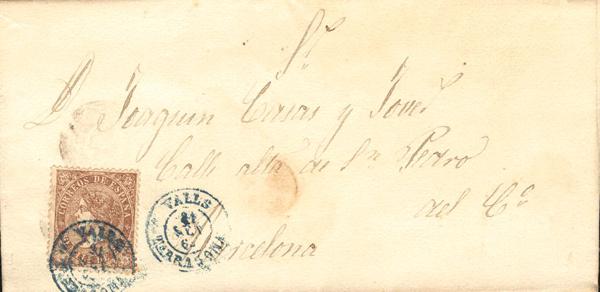 Sr
D. Joaquin Casas y Jover
Calle alta de Sn Pedro
del Co
Barcelona
CORREOS DE ESPAÑA
VALLS
TARRAGONA
VALLS